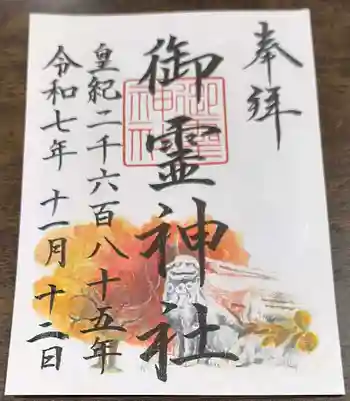 奉拝
御霊神社
皇紀二千六百八十五年
令和七年 十一月 十二日